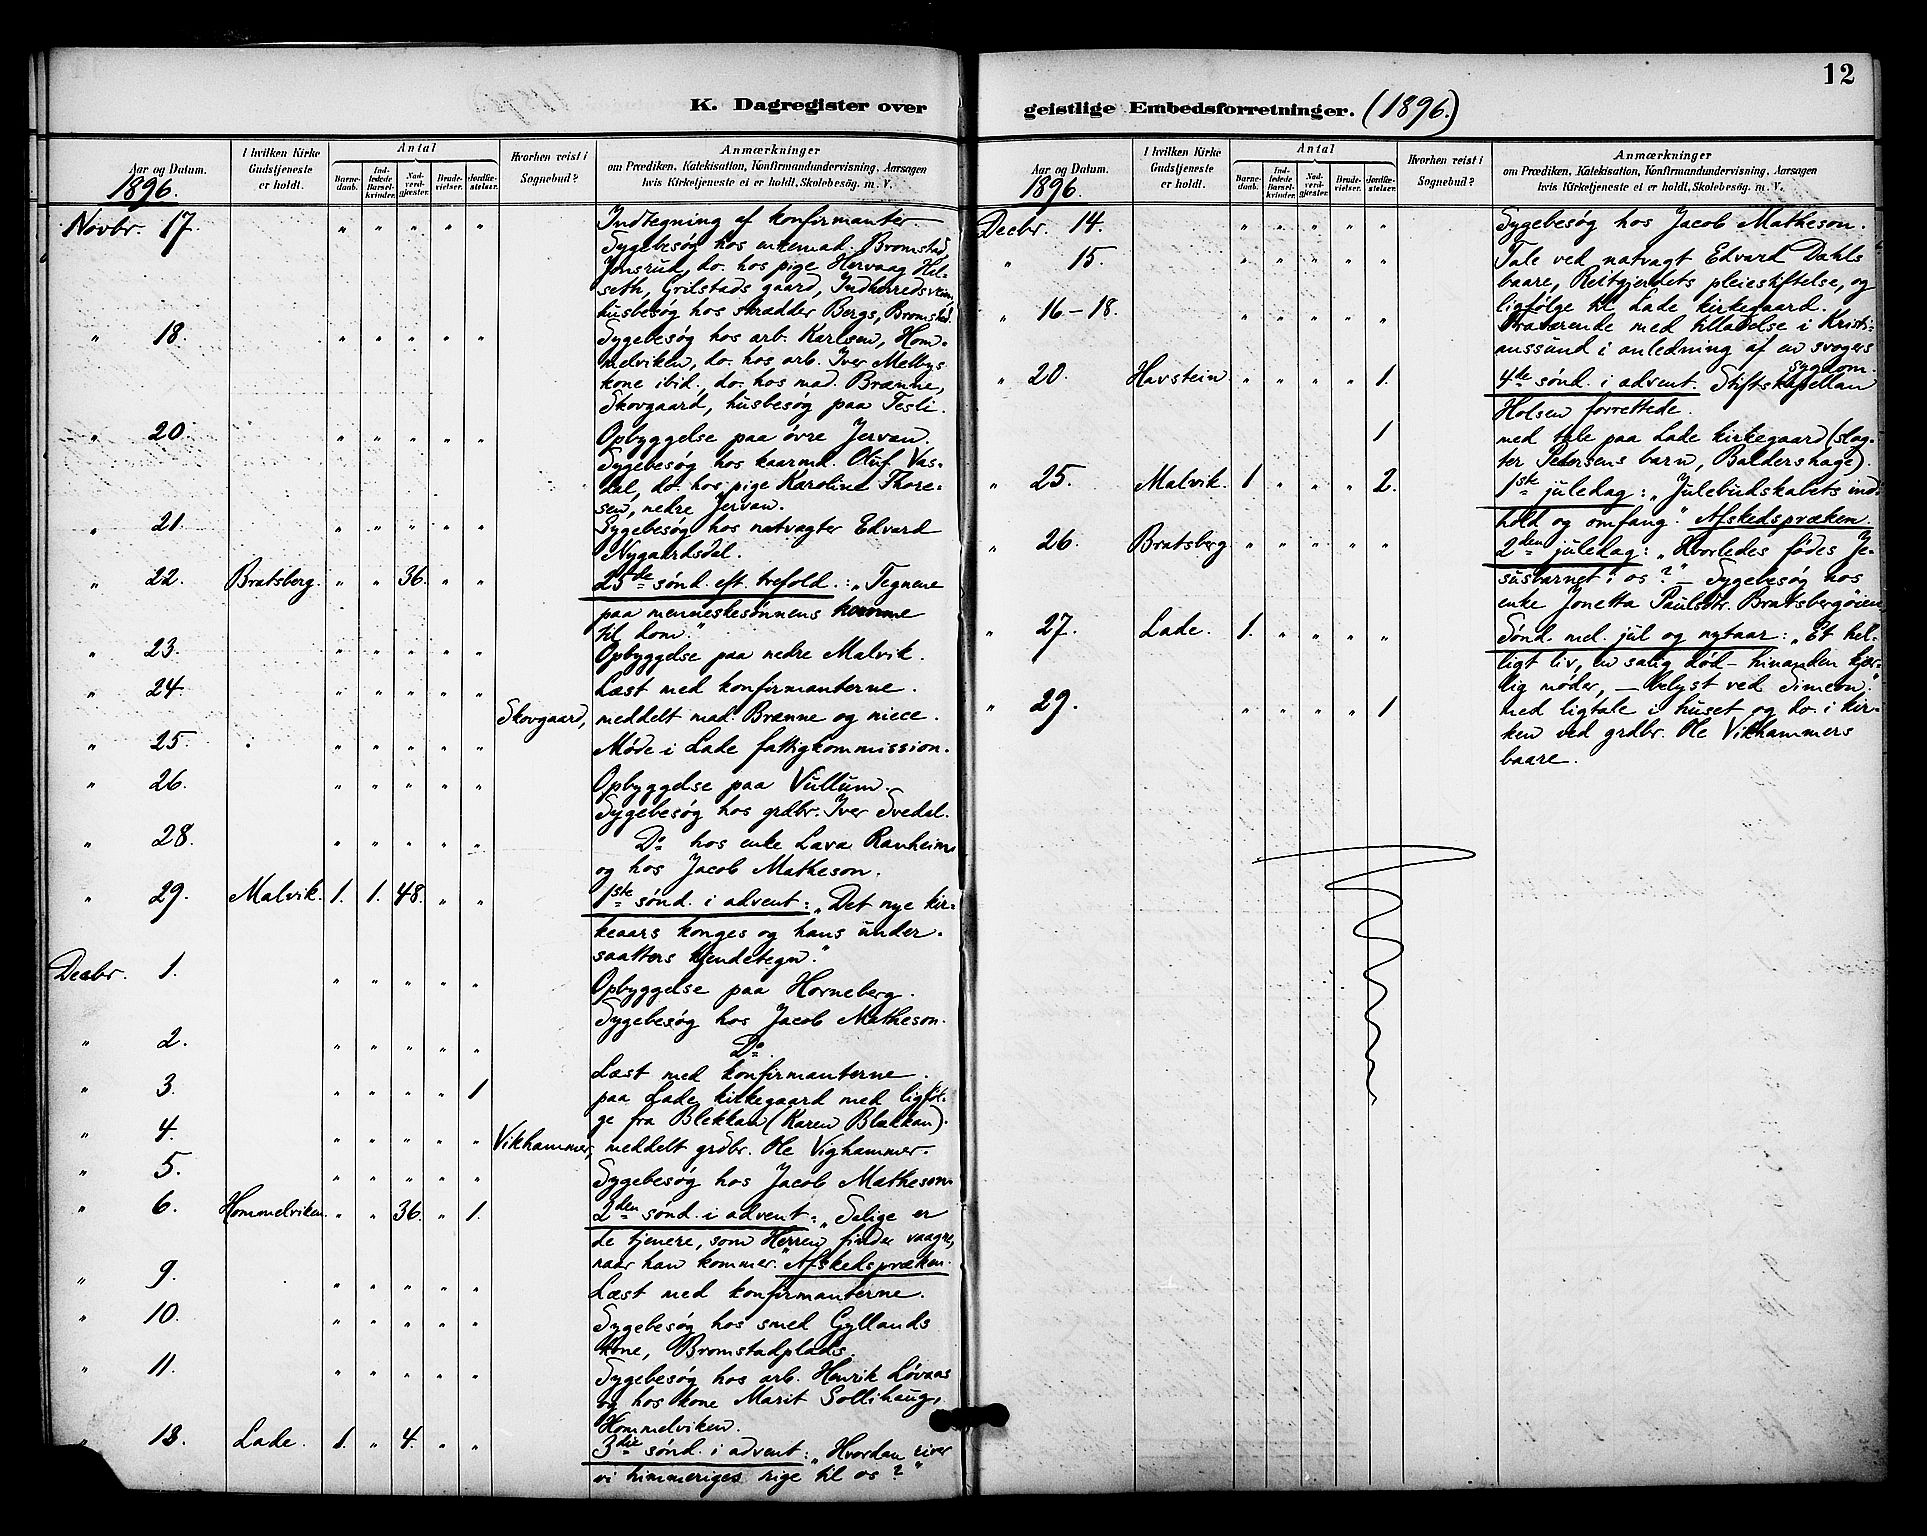 12
K. Dagregister over geistlige Embedsforretninger. (1896.)
Aar og Datum. 1896.
I hvilken Kirke Gudstjeneste er holdt.
Antal
Barnedaab.
Indledede Barselkvinder.
Nadverdgjester.
Brudevielser.
Jordfæstelser.
Hvorhen reist i Sognebud?
Anmærkninger
om Prædiken, Katekisation, Konfirmandundervisning, Aarsagen
hvis Kirketjeneste ei er holdt, Skolebesøg. m. V.
Novbr. 17. " " " " " Indtegning af konfirmanter.
Sygebesøg hos enkemad. Bromstad,
Jonsrud, do. hos pige Hervaag Hel-
seth, Grilstads gaard, Indherredsveien,
husbesøg hos skrædder Bergs, Bromstad.
" 18. " " " " " Sygebesøg hos arb. Karlsen, Hom-
melviken, do. hos arb. Iver Melbys
kone ibid., do. hos mad. Brænne,
Skovgaard, husbesøg paa Tesli.
" 20. " " " " " Opbyggelse paa øvre Jervan.
Sygebesøg hos kaarmd. Oluf Vas-
dal, do. hos pige Karoline Thore-
sen, nedre Jervan.
" 21. " " " " " Sygebesøg hos natvagter Edvard
Nygaardsdal.
" 22. Bratsberg. " " 36. " " 25de sønd. eft. trefold.: „Tegnene
paa menneskesønnens komme
til dom."
" 23. " " " " " Opbyggelse paa nedre Malvik.
" 24. " " " " " Læst med konfirmanterne.
Skovgaard, meddelt mad. Brænne og niece.
" 25. " " " " " Møde i Lade fattigkommission.
" 26. " " " " " Opbyggelse paa Vullum.
Sygebesøg hos grdbr. Iver Svedal.
" 28. " " " " " Do hos enke Lava Ranheim
og hos Jacob Matheson.
" 29. Malvik. 1. 1. 48. " " 1ste sønd. i advent: „Det nye kir-
keaars konges og hans under-
saatters kjendetegn."
Decbr. 1. " " " " " Opbyggelse paa Horneberg.
Sygebesøg hos Jacob Matheson.
" 2. " " " " " Do
Læst med konfirmanterne.
" 3. " " " " 1 paa Lade kirkegaard med ligføl-
ge fra Blekkan (Karen Blakkan).
" 4. " " " " " Vikhammer, meddelt grdbr. Ole Vighammer.
" 5. " " " " " Sygebesøg hos Jacob Matheson.
" 6. Hommelviken. " " 36. " 1. 2den sønd. i advent: „Salige er
de tjenere, som Herren finder vaagne,
naar han kommer." Afskedspræken.
" 9. " " " " " Læst med konfirmanterne.
" 10. " " " " " Sygebesøg hos smed Gyllands
kone, Bromstadplads.
" 11. " " " " " Sygebesøg hos arb. Henrik Løvaas
og hos kone Marit Sollihaug,
Hommelviken.
" 13. Lade. 1. " 4. " " 3die sønd. i advent: „Hvordan river
vi himmeriges rige til os?"
Aar og Datum. 1896.
I hvilken Kirke Gudstjeneste er holdt.
Antal
Barnedaab.
Indledede Barselkvinder.
Nadverdgjester.
Brudevielser.
Jordfæstelser.
Hvorhen reist i Sognebud?
Anmærkninger
om Prædiken, Katekisation, Konfirmandundervisning, Aarsagen
hvis Kirketjeneste ei er holdt, Skolebesøg. m. V.
Decbr. 14. " " " " " Sygebesøg hos Jacob Matheson.
" 15. " " " " " Tale ved natvagt Edvard Dahls
baare, Reitgjerdets pleiestiftelse, og
ligfølge til Lade kirkegaard.
" 16-18. " " " " " Fraværende med tilladelse i Kristi-
anssund i anledning af en svogers
sygdom.
" 20. Havstein. " " " " 1. 4de sønd. i advent. Stiftskapellan
Holsen forrettede.
1 med tale paa Lade kirkegaard (slag-
ter Petersens barn, Baldershage).
" 25. Malvik. 1 " " " 2. 1ste juledag: „Julebudskabets ind-
hold og omfang." Afskedspræken.
" 26. Bratsberg " " " " " 2den juledag: „Hvorledes fødes Je-
susbarnet i os?" – Sygebesøg hos
enke Jonetta Paulsdtr. Bratsbergøien.
" 27. Lade. 1. " " " " Sønd. mel. jul og nytaar: „Et hel-
ligt liv, en salig død – hinanden kjær-
lig møder, – belyst ved Simeon."
" 29. " " " " 1 med ligtale i huset og do. i kir-
ken ved grdbr. Ole Vikhammers
baare.